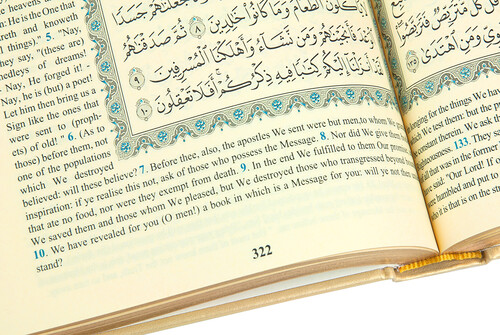 heavens
is) He is the One that
eareth and know-
l things)." 5. "Nay,
they say, "(these are)
medleys of dreams!
Nay, He forged it! -
Nay, he is (but) a poet!
Let him then bring us a
Sign like the ones that
were sent to (proph-
ets) of old!" 6. (As to
those) before them, not
one of the populations
which We destroyed
believed: will these believe? 7. Before thee, also, the apostles We sent were but men,to whom We
inspiration: if ye realise this not, ask of those who possess the Message. 8. Nor did We give them
that ate no food, nor were they exempt from death. 9. In the end We fulfilled to them Our
We saved them and those whom We pleased, but We destroyed those who transgressed beyond
10. We have revealed for you (O men!) a book in which is a Message for you: will ye not then
stand?
322
ٱلطَّعَامَ وَمَا كَانُوا۟ خَٰلِدِينَ ٨ ثُمَّ صَدَقْنَٰهُمُ
ٱلْوَعْدَ فَأَنجَيْنَٰهُمْ وَمَن نَّشَآءُ وَأَهْلَكْنَا ٱلْمُسْرِفِينَ
٩ لَقَدْ أَنزَلْنَآ إِلَيْكُمْ كِتَٰبًا فِيهِ ذِكْرُكُمْ أَفَلَا تَعْقِلُونَ
١٠
وَمَنِ ٱهْتَدَىٰ ١٣٥
changing for the things We ha
We test them: but the
constant therein. We ask the
righteousness. 133. They s
all that was in the former
said: "Our Lord! If
humbled and put to
who it is that is on the